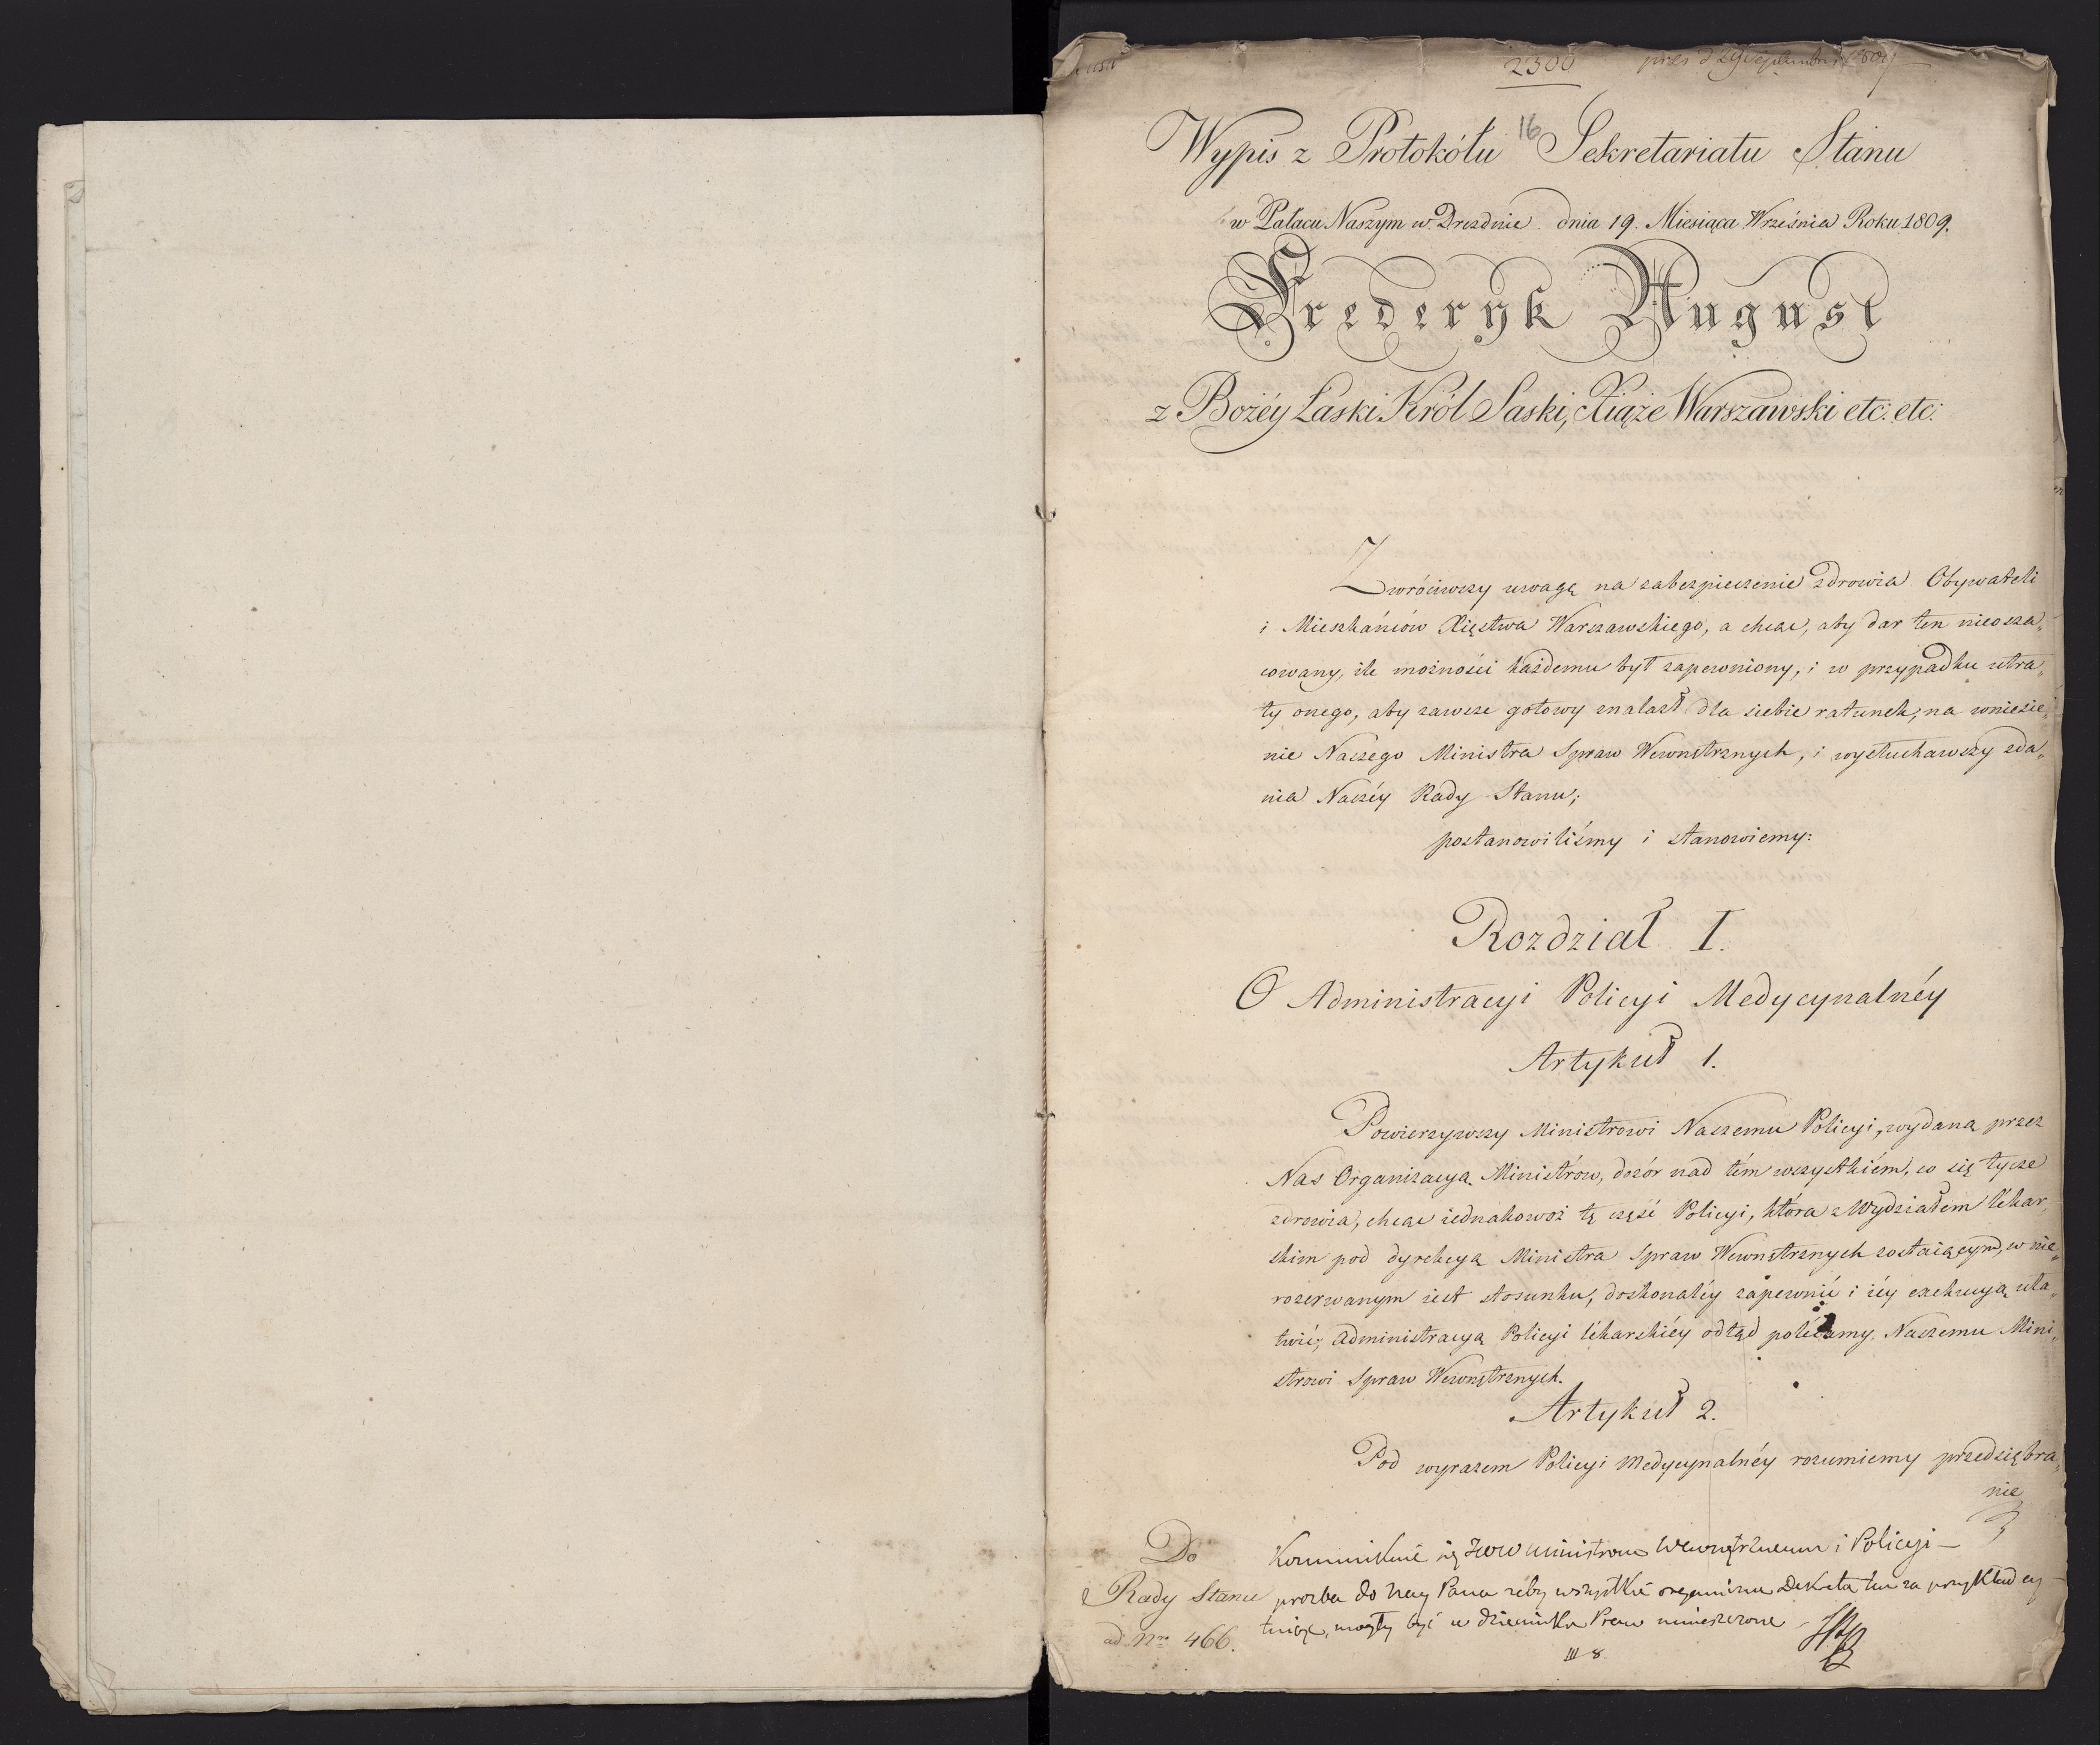 2300 pres d 29 Septembris 1809
16
Wypis z Protokółu Sekretariatu Stanu
w Pałacu Naszym w Dreźdnie dnia 19. Miesiąca Września Roku 1809.
Frederyk August
z Bożéy Łaski Król Saski, Xiąże Warszawski etc: etc:
Zwróciwszy uwagę na zabezpieczenie zdrowia Obywateli
i Mieszkańców Xięstwa Warszawskiego, a chcąc, aby dar ten nieosza„
cowany, ile możności każdemu był zapewniony, i w przypadku utra„
ty onego, aby zawsze gotowy znalazł dla siebie ratunek, na wniesie„
nie Naszego Ministra Spraw Wewnętrznych, i wysłuchawszy zda„
nia Naszéy Rady Stanu;
postanowiliśmy i stanowiemy:
Rozdział I.
O Administracyi Policyi Medycynalnéy
Artykuł 1.
Powierzywszy Ministrowi Naszemu Policyi, wydaną przez
Nas Organizacyą Ministrów, dozór nad tém wszystkiém, co się tycze
zdrowia, chcąc iednakowoż tę część Policyi, która z Wydziałem lékar„
skim pod dyrekcyą Ministra Spraw Wewnętrznych zostaiącym, w nie„
rozerwanym iest stosunku, doskonaléy zapewnić i iéy exekucyą uła„
twić; administracyą Policyi lékarskiéy odtąd polécamy Naszemu Mini„
strowi Spraw Wewnętrznych.
Artykuł 2.
Pod wyrazem Policyi Medycynalnéy rozumiemy przedsiębra„
nie
Do
Rady Stanu
ad Nro 466.
Kommunikuie się JWW Ministrom Wewnętrznemu i Policyi –
prozba do Nay Pana żeby wszystkie organiczne Dekreta tu za przykład cy
tuiąc, mogły być w dzienniku Praw umieszczone –
III 8